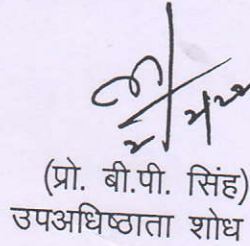 (प्रो. बी.पी. सिंह)
उपअधिष्ठाता शोध